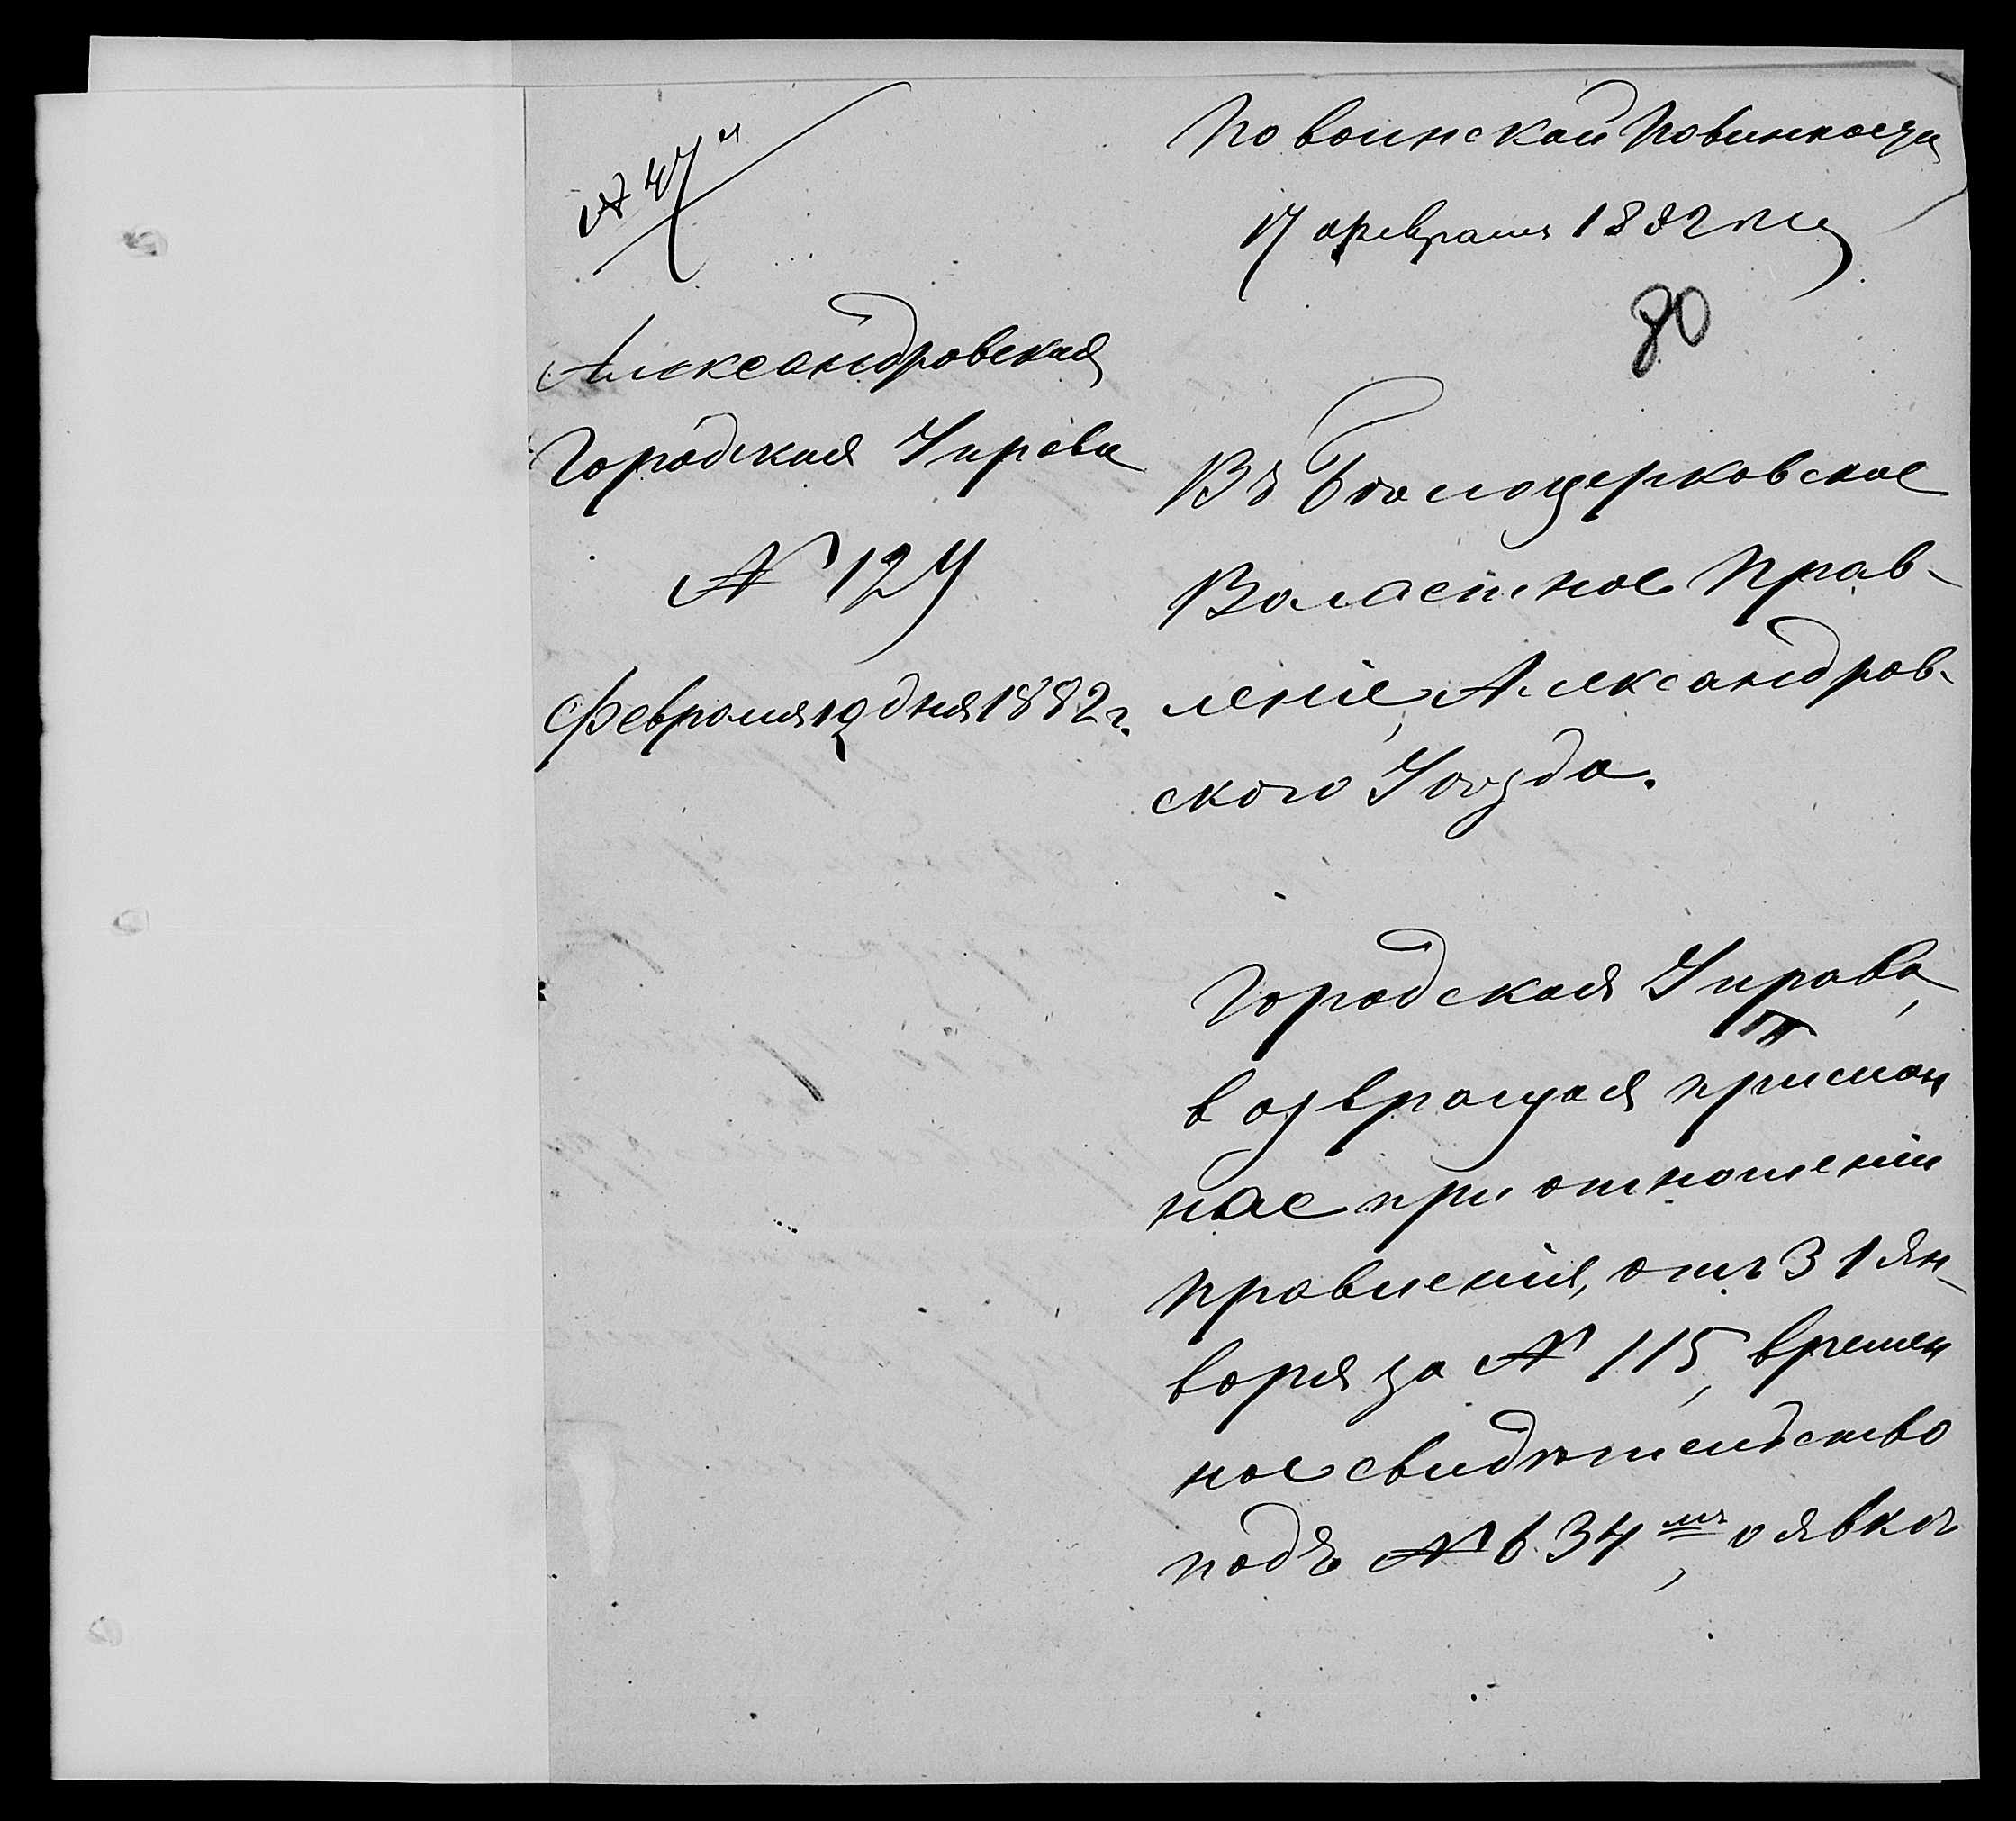 По воинской Повинности
17 февраля 1882 года
80
Александровская
Городская Управа
№ 124
Февраля 19 дня 1882 г.
Въ Бѣлоцерковское
Волостное Прав-
леніе, Александров-
ского Уѣзда.
Городская Управа,
возвращая прислан
ное при отношеніи
правленія, отъ 31 Ян-
воря за № 115, времен
ное свидѣтельство
подъ № 634мъ, о явкѣ